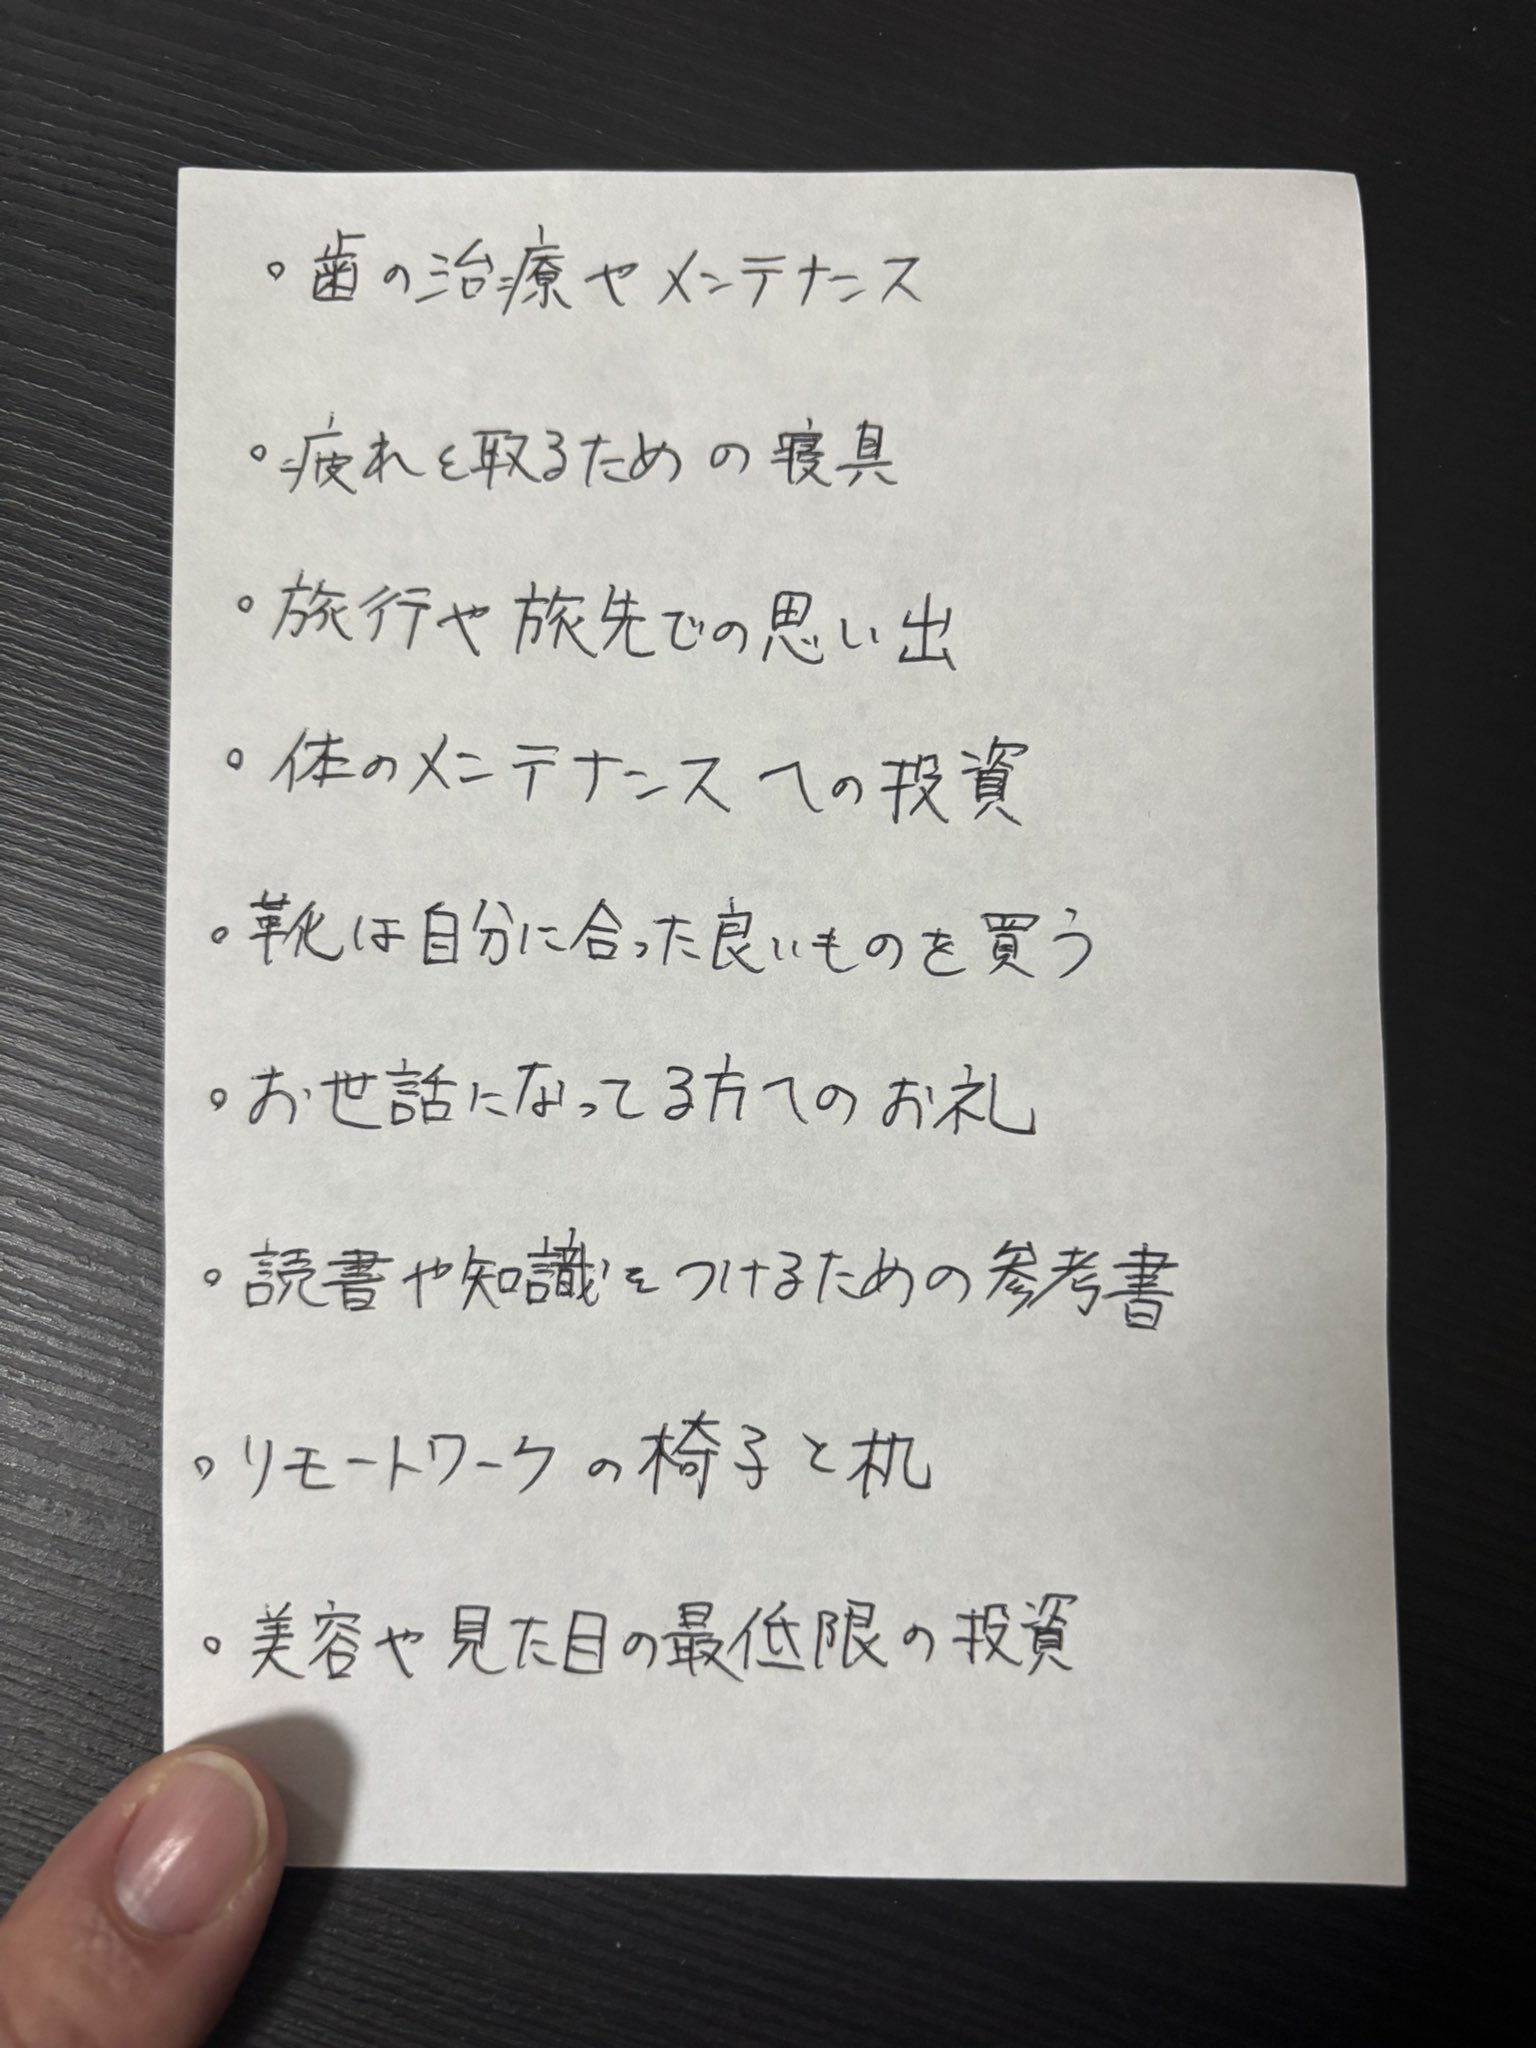 。歯の治療やメンテナンス
。疲れを取るための寝具
。旅行や旅先での思い出
。体のメンテナンスへの投資
。靴は自分に合った良いものを買う
。お世話になってる方へのお礼
。読書や知識をつけるための参考書
。リモートワークの椅子と机
。美容や見た目の最低限の投資